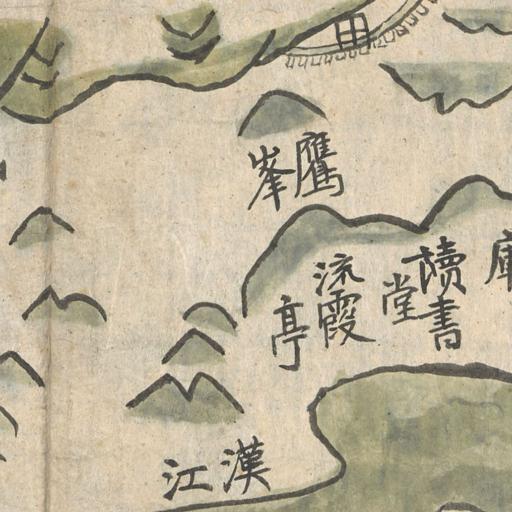 鷹峯
讀書堂
流霞亭
漢江